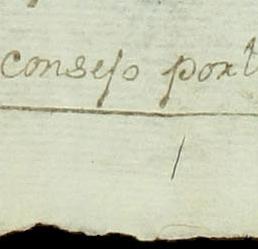 consejo por